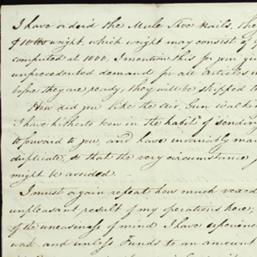 I have added the Mule Shoe Nails, the
weight, which weight may consist of
computed at 1000, I mention this for your
unprecedented demand for all articles
before they are ready, they will be shipped to
How did you like the Air Gun Walking
I have hitherto been in the habit of sending
to forward to you, and have invariably ma
duplicate, so that the very circumstance
might be avoided.
I must again repeat how much vexed
unpleasant result of my operations here;
of the uneasiness of mind I have experienc
and unless Funds to an amount